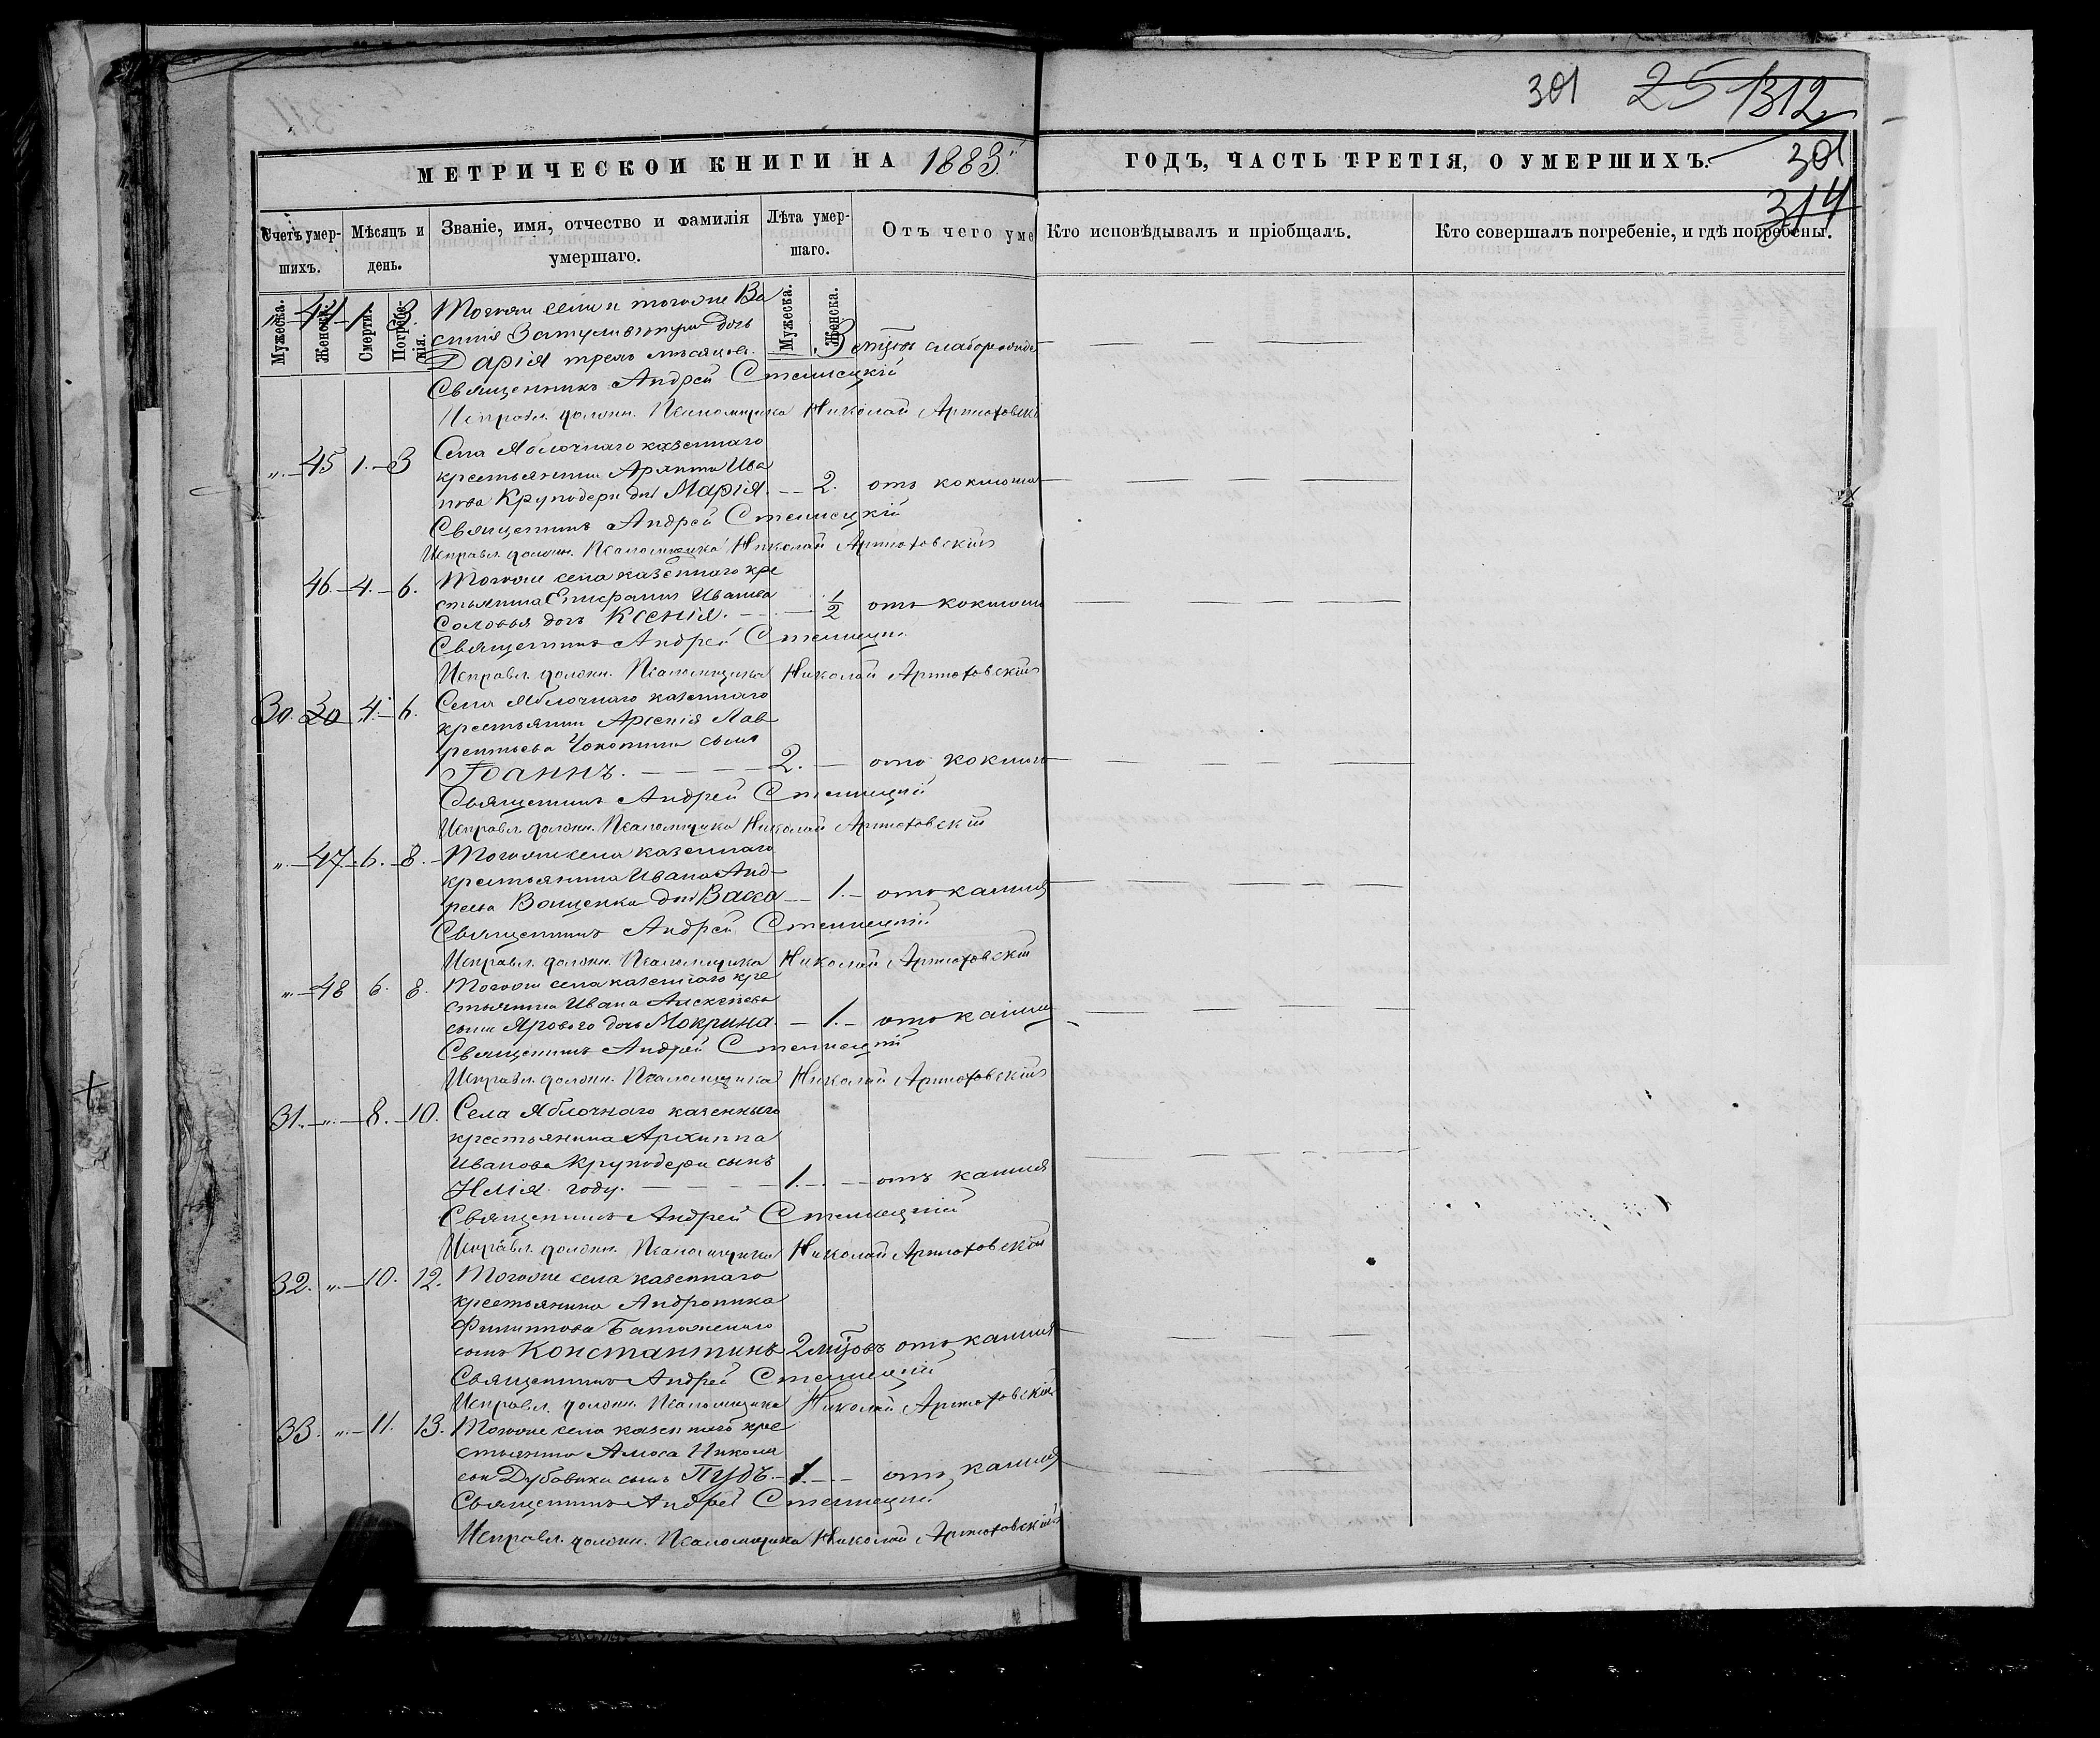 301 25 312
МЕТРИЧЕСКОЙ КНИГИ НА 1883 ГОДЪ, ЧАСТЬ ТРЕТІЯ, О УМЕРШИХЪ.
301
314
Счетъ умершихъ.
Мѣсяцъ и день.
Званіе, имя, отчество и фамилія умершаго.
Лѣта умершаго.
Отъ чего уме
Кто исповѣдывалъ и пріобщалъ.
Кто совершалъ погребеніе, и гдѣ погребены.
Мужеска.
Женска.
Смерти.
Погребенія.
Мужеска.
Женска.
44 1 3
села
дочь
Дарія трехъ мѣсяцевъ 3
Священникъ Андрей
Исправл. должн. Псаломщика Николай
„ 45 1. 3 Села Яблочнаго казеннаго
крестьянина Архипа Ива
нова Круподери дочь Марія 2. отъ коклюша
Священникъ Андрей
Исправл. должн. Псаломщика Николай
46. 4. 6. Тогоже села казеннаго кре
стьянина Ивана
Соловья дочь Ксенія. 1/2 отъ коклюша
Священникъ Андрей
Исправл. должн. Псаломщика Николай
30. 30 4. 6. Села Яблочнаго казеннаго
крестьянина Арсенія Лав
рентьева сынъ
Іоаннъ. 2. отъ коклюша
Священникъ Андрей
Исправл. должн. Псаломщика Николай
„ 47 6. 8. Тогоже села казеннаго
крестьянина Ивана Анд
реева дочь Васса 1. отъ кашля
Священникъ Андрей
Исправл. должн. Псаломщика Николай
„ 48 6. 8. Тогоже села казеннаго кре
стьянина Ивана Алексѣева
Ярового дочь Мокрина. 1. отъ кашля
Священникъ Андрей
Исправл. должн. Псаломщика Николай
31. „ 8. 10. Села Яблочнаго казеннаго
крестьянина Архиппа
Иванова Круподери сынъ
Илія году. 1. отъ кашля
Священникъ Андрей
Исправл. должн. Псаломщика Николай
32. „ 10. 12. Тогоже села казеннаго
крестьянина Андроника
Филиппова
сынъ Константинъ 2 отъ кашля
Священникъ Андрей
Исправл. должн. Псаломщика Николай
33. „ 11. 13. Тогоже села казеннаго кре
стьянина Амоса Никола
Дубовика сынъ Пудъ. 1. отъ кашля
Священникъ Андрей
Исправл. должн. Псаломщика Николай